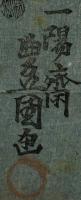 一陽斎
豊国画